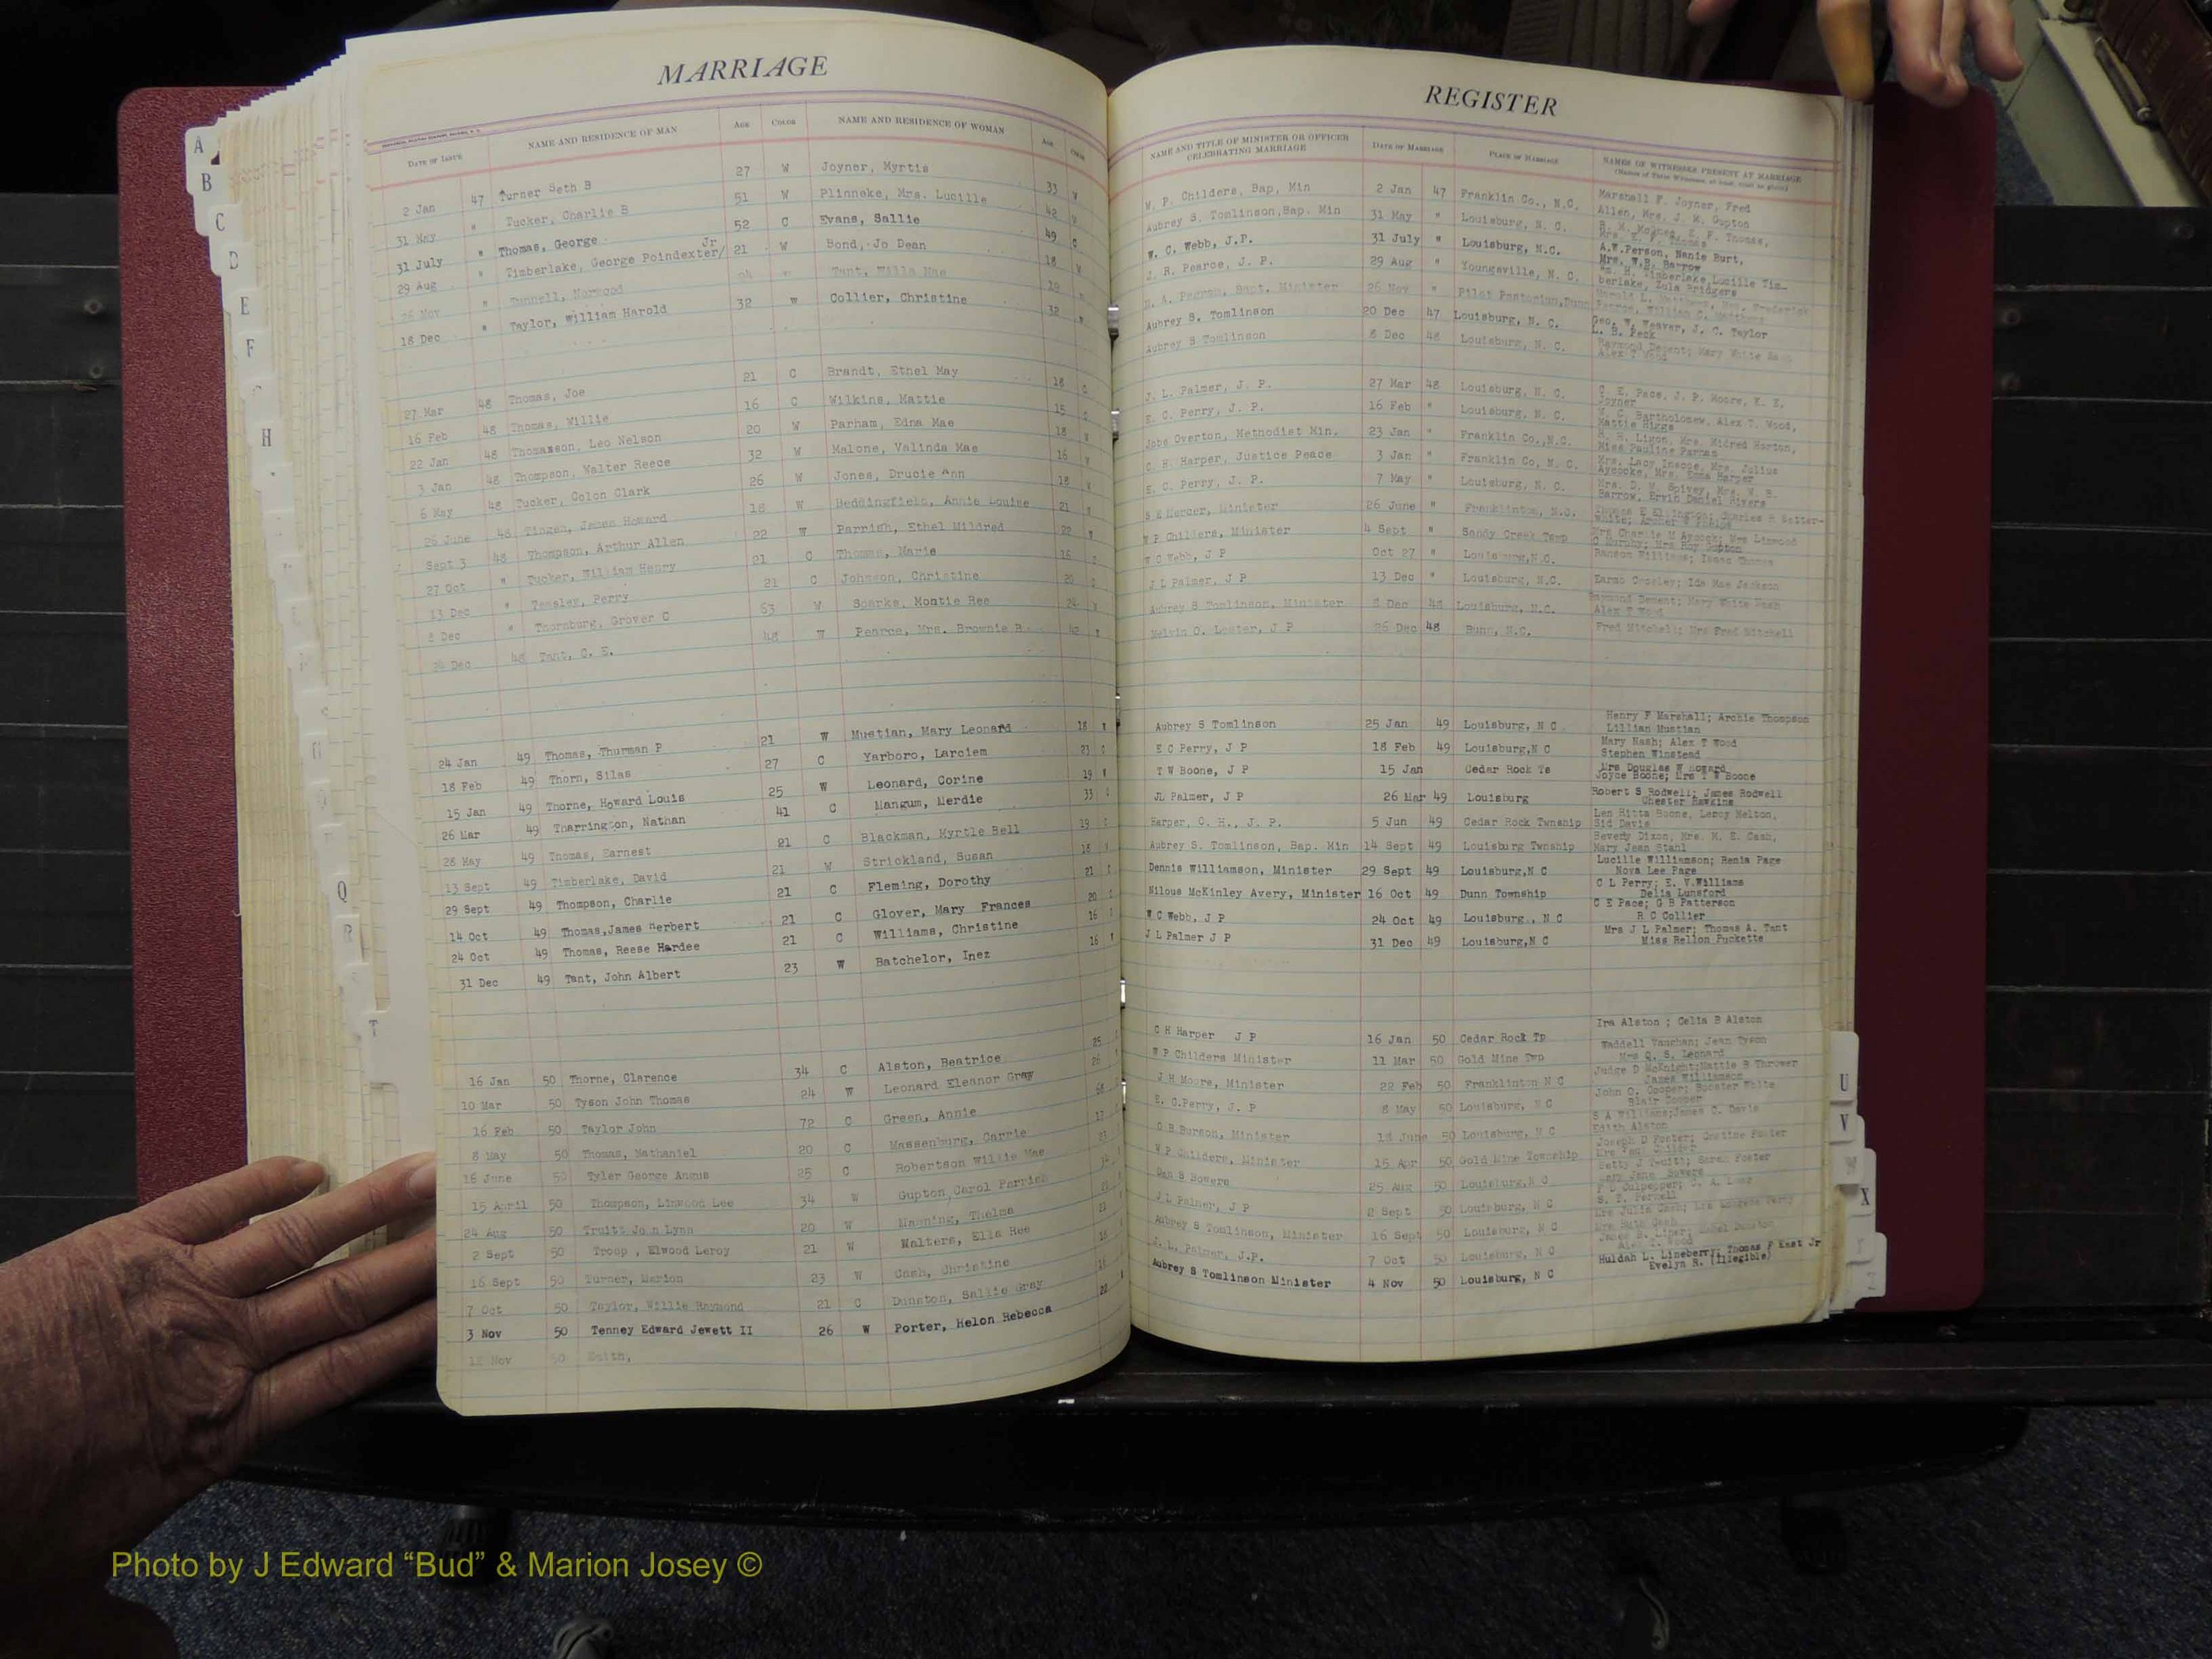 MARRIAGE
DATE OF ISSUE NAME AND RESIDENCE OF MAN AGE COLOR NAME AND RESIDENCE OF WOMAN AGE COLOR
2 Jan 47 Turner Seth B 27 W Joyner, Myrtis 33
31 May " Tucker, Charlie B 51 W Plinneke, Mrs. Lucille 42
31 July " Thomas, George 52 C Evans, Sallie 49 C
29 Aug " Timberlake, George Poindexter/ Jr 21 W Bond, Jo Dean 18
26 Nov " Tunnell, Norwood Tant, Willa Mae 19
18 Dec " Taylor, William Harold 32 W Collier, Christine 32
27 Mar 48 Thomas, Joe 21 C Brandt, Ethel May 18
16 Feb 48 Thomas, Willie 16 C Wilkins, Mattie 15
22 Jan 48 Thomasson, Leo Nelson 20 W Parham, Edna Mae 18
3 Jan 48 Thompson, Walter Reece 32 W Malone, Valinda Mae 16
6 May 48 Tucker, Colon Clark 26 W Jones, Drucie Ann 18
26 June 48 Tingen, James Howard 18 W Beddingfield, Annie Louise 21
Sept 3 48 Thompson, Arthur Allen 22 W Parrish, Ethel Mildred 22
27 Oct " Tucker, William Henry 21 C Thomas, Marie
13 Dec " Teasley, Perry 21 C Johnson, Christine 20
8 Dec " Thornburg, Grover C 53 W Sparks, Montie Ree 24
24 Dec 48 Tant, C. E. 48 W Pearce, Mrs. Brownie B. 42
24 Jan 49 Thomas, Thurman P 21 W Mustian, Mary Leonard 18
18 Feb 49 Thorn, Silas 27 C Yarboro, Larciem 23
15 Jan 49 Thorne, Howard Louis 25 W Leonard, Corine 19
26 Mar 49 Tharrington, Nathan 41 C Mangum, Merdie 33
28 May 49 Thomas, Earnest 21 C Blackman, Myrtle Bell 19
13 Sept 49 Timberlake, David 21 W Strickland, Susan 18
29 Sept 49 Thompson, Charlie 21 C Fleming, Dorothy 21
14 Oct 49 Thomas, James Herbert 21 C Glover, Mary Frances 20
24 Oct 49 Thomas, Reese Hardee 21 C Williams, Christine 16
31 Dec 49 Tant, John Albert 23 W Batchelor, Inez 16
16 Jan 50 Thorne, Clarence 34 C Alston, Beatrice 25
10 Mar 50 Tyson John Thomas 24 W Leonard Eleanor Gray 26
16 Feb 50 Taylor John 72 C Green, Annie
8 May 50 Thomas, Nathaniel 20 C Massenburg, Carrie 17
16 June 50 Tyler George Angus 25 C Robertson Willie Mae
15 April 50 Thompson, Linwood Lee 34 W Gupton, Carol Parrish
24 Aug 50 Truitt John Lynn 20 W Manning, Thelma
2 Sept 50 Troop , Elwood Leroy 21 W Walters, Ella Ree
16 Sept 50 Turner, Marion 23 W Cash, Christine
7 Oct 50 Taylor, Willie Raymond 21 C Dunston, Sallie Gray
3 Nov 50 Tenney Edward Jewett II 26 W Porter, Helon Rebecca 22
Nov 50
REGISTER
NAME AND TITLE OF MINISTER OR OFFICER CELEBRATING MARRIAGE DATE OF MARRIAGE PLACE OF MARRIAGE NAMES OF WITNESSES PRESENT AT MARRIAGE
W. P. Childers, Bap, Min 2 Jan 47 Franklin Co., N.C. Marshall F. Joyner, Fred
Allen, Mrs. J. M. Gupton
Aubrey S. Tomlinson, Bap. Min 31 May " Louisburg, N. C.
W. C. Webb, J.P. 31 July " Louisburg, N.C. A.W.Person, Nanie Burt,
Mrs. W.B. Barrow
J. R. Pearce, J. P. 29 Aug " Youngsville, N. C. Wm. H. Timberlake, Lucille Tim-
berlake, Zula Bridgers
Bapt. Minister 26 Nov " Pilot
Aubrey S. Tomlinson 20 Dec 47 Louisburg, N. C. Geo. W. Weaver, J. C. Taylor
L. B. Peck
Aubrey S Tomlinson 8 Dec 48 Louisburg, N. C. Raymond Dement; Mary White Nash
Alex T Wood
J. L. Palmer, J. P. 27 Mar 48 Louisburg, N. C. C. E. Pace, J. P. Moore, K. E.
Joyner
E. C. Perry, J. P. 16 Feb " Louisburg, N. C. N. C. Bartholomew, Alex T. Wood,
Mattie Higgs
Jabe Overton, Methodist Min. 23 Jan " Franklin Co., N.C. R. H. Ligon, Mrs. Mildred Horton,
Miss Pauline Parham
C. H. Harper, Justice Peace 3 Jan " Franklin Co, N. C. Mrs. Lacy Inscoe, Mrs. Julius
Aycocke, Mrs. Emma Harper
E. C. Perry, J. P. 7 May " Louisburg, N. C. Mrs. D. W. Spivey, Mrs. W. B.
Barrow, Ervin Daniel Rivers
S E Mercer, Minister 26 June " Franklinton, N.C. Thomas E Ellington; Charles R Satter-
White; Archer W Phelps
W P Childers, Minister 4 Sept " Sandy Creek Twsp Mrs Charlie M Aycock; Mrs Linwood
C Murphy; Mrs Roy Gupton
W C Webb, J P Oct 27 " Louisburg, N.C. Ranson Williams; Isaac Thomas
J L Palmer, J P 13 Dec " Louisburg, N.C. Earnb Crosley; Ida Mae Jackson
Aubrey S Tomlinson, Minister 8 Dec 48 Louisburg, N.C. Raymond Dement; Mary White Nash
Alex T Wood
Melvin O. Lester, J P 26 Dec 48 Bunn, N.C. Fred Mitchell; Mrs Fred Mitchell
Aubrey S Tomlinson 25 Jan 49 Louisburg, N C Henry F Marshall; Archie Thompson
Lillian Mustian
E C Perry, J P 18 Feb 49 Louisburg,N C Mary Nash; Alex T Wood
Stephen Winstead
T W Boone, J P 15 Jan Cedar Rock Ts Mrs Douglas W Howard
Joyce Boone; Mrs T W Boone
JL Palmer, J P 26 Mar 49 Louisburg Robert S Rodwell; James Rodwell
Chester Hawkins
Harper, C. H., J. P. 5 Jun 49 Cedar Rock Twnship Len Hitta Boone, Leroy Melton,
Sid Davis
Aubrey S. Tomlinson, Bap. Min 14 Sept 49 Louisburg Twnship Beverly Dixon, Mrs. M. E. Cash,
Mary Jean Stahl
Dennis Williamson, Minister 29 Sept 49 Louisburg,N C Lucille Williamson; Renia Page
Nova Lee Page
Nilous McKinley Avery, Minister 16 Oct 49 Dunn Township C L Perry; E. V.Williams
Delia Lunsford
W C Webb, J P 24 Oct 49 Louisburg., N C C E Pace; G B Patterson
R C Collier
J L Palmer J P 31 Dec 49 Louisburg,N C Mrs J L Palmer; Thomas A. Tant
Miss Rellon Puckette
C H Harper J P 16 Jan 50 Cedar Rock Tp Ira Alston ; Celia B Alston
W P Childers Minister 11 Mar 50 Gold Mine Twp Waddell Vaughan; Jean Tyson
Mrs Q. S. Leonard
J H Moore, Minister 22 Feb 50 Franklinton N C Judge D McKnight;Mattie B Thrower
James Williamson
E. C.Perry, J. P 8 May 50 Louisburg, N C John O. Cooper; Booster White
Blair Cooper
O B Burson, Minister 18 June 50 Louisburg, N C S A Williams;James C. Davis
Edith Alston
W P Childers, Minister 15 Apr 50 Gold Mine Township Joseph D Foster; Custine Foster
Dan S Bowers 25 Aug 50 Louisburg,N C Betty J Truitt; Sarah Foster
Mary Jane Bowers
J L Palmer, J P 2 Sept 50 Louisburg, N C F D Culpepper;
S. T. Pernell
Aubrey S Tomlinson, Minister 16 Sept 50 Louisburg, N C Mrs Julia Cash;
Mrs Ruth Cash
J. L. Palmer, J.P. 7 Oct 50 Louisburg, N C
Aubrey S Tomlinson Minister 4 Nov 50 Louisburg, N C Huldah L. Lineberry; Thomas F East Jr
Evelyn R. (Illegible)
A
B
C
D
E
F
H
Q
R
T
U
V
W
X
Z
Photo by J Edward “Bud” & Marion Josey ©